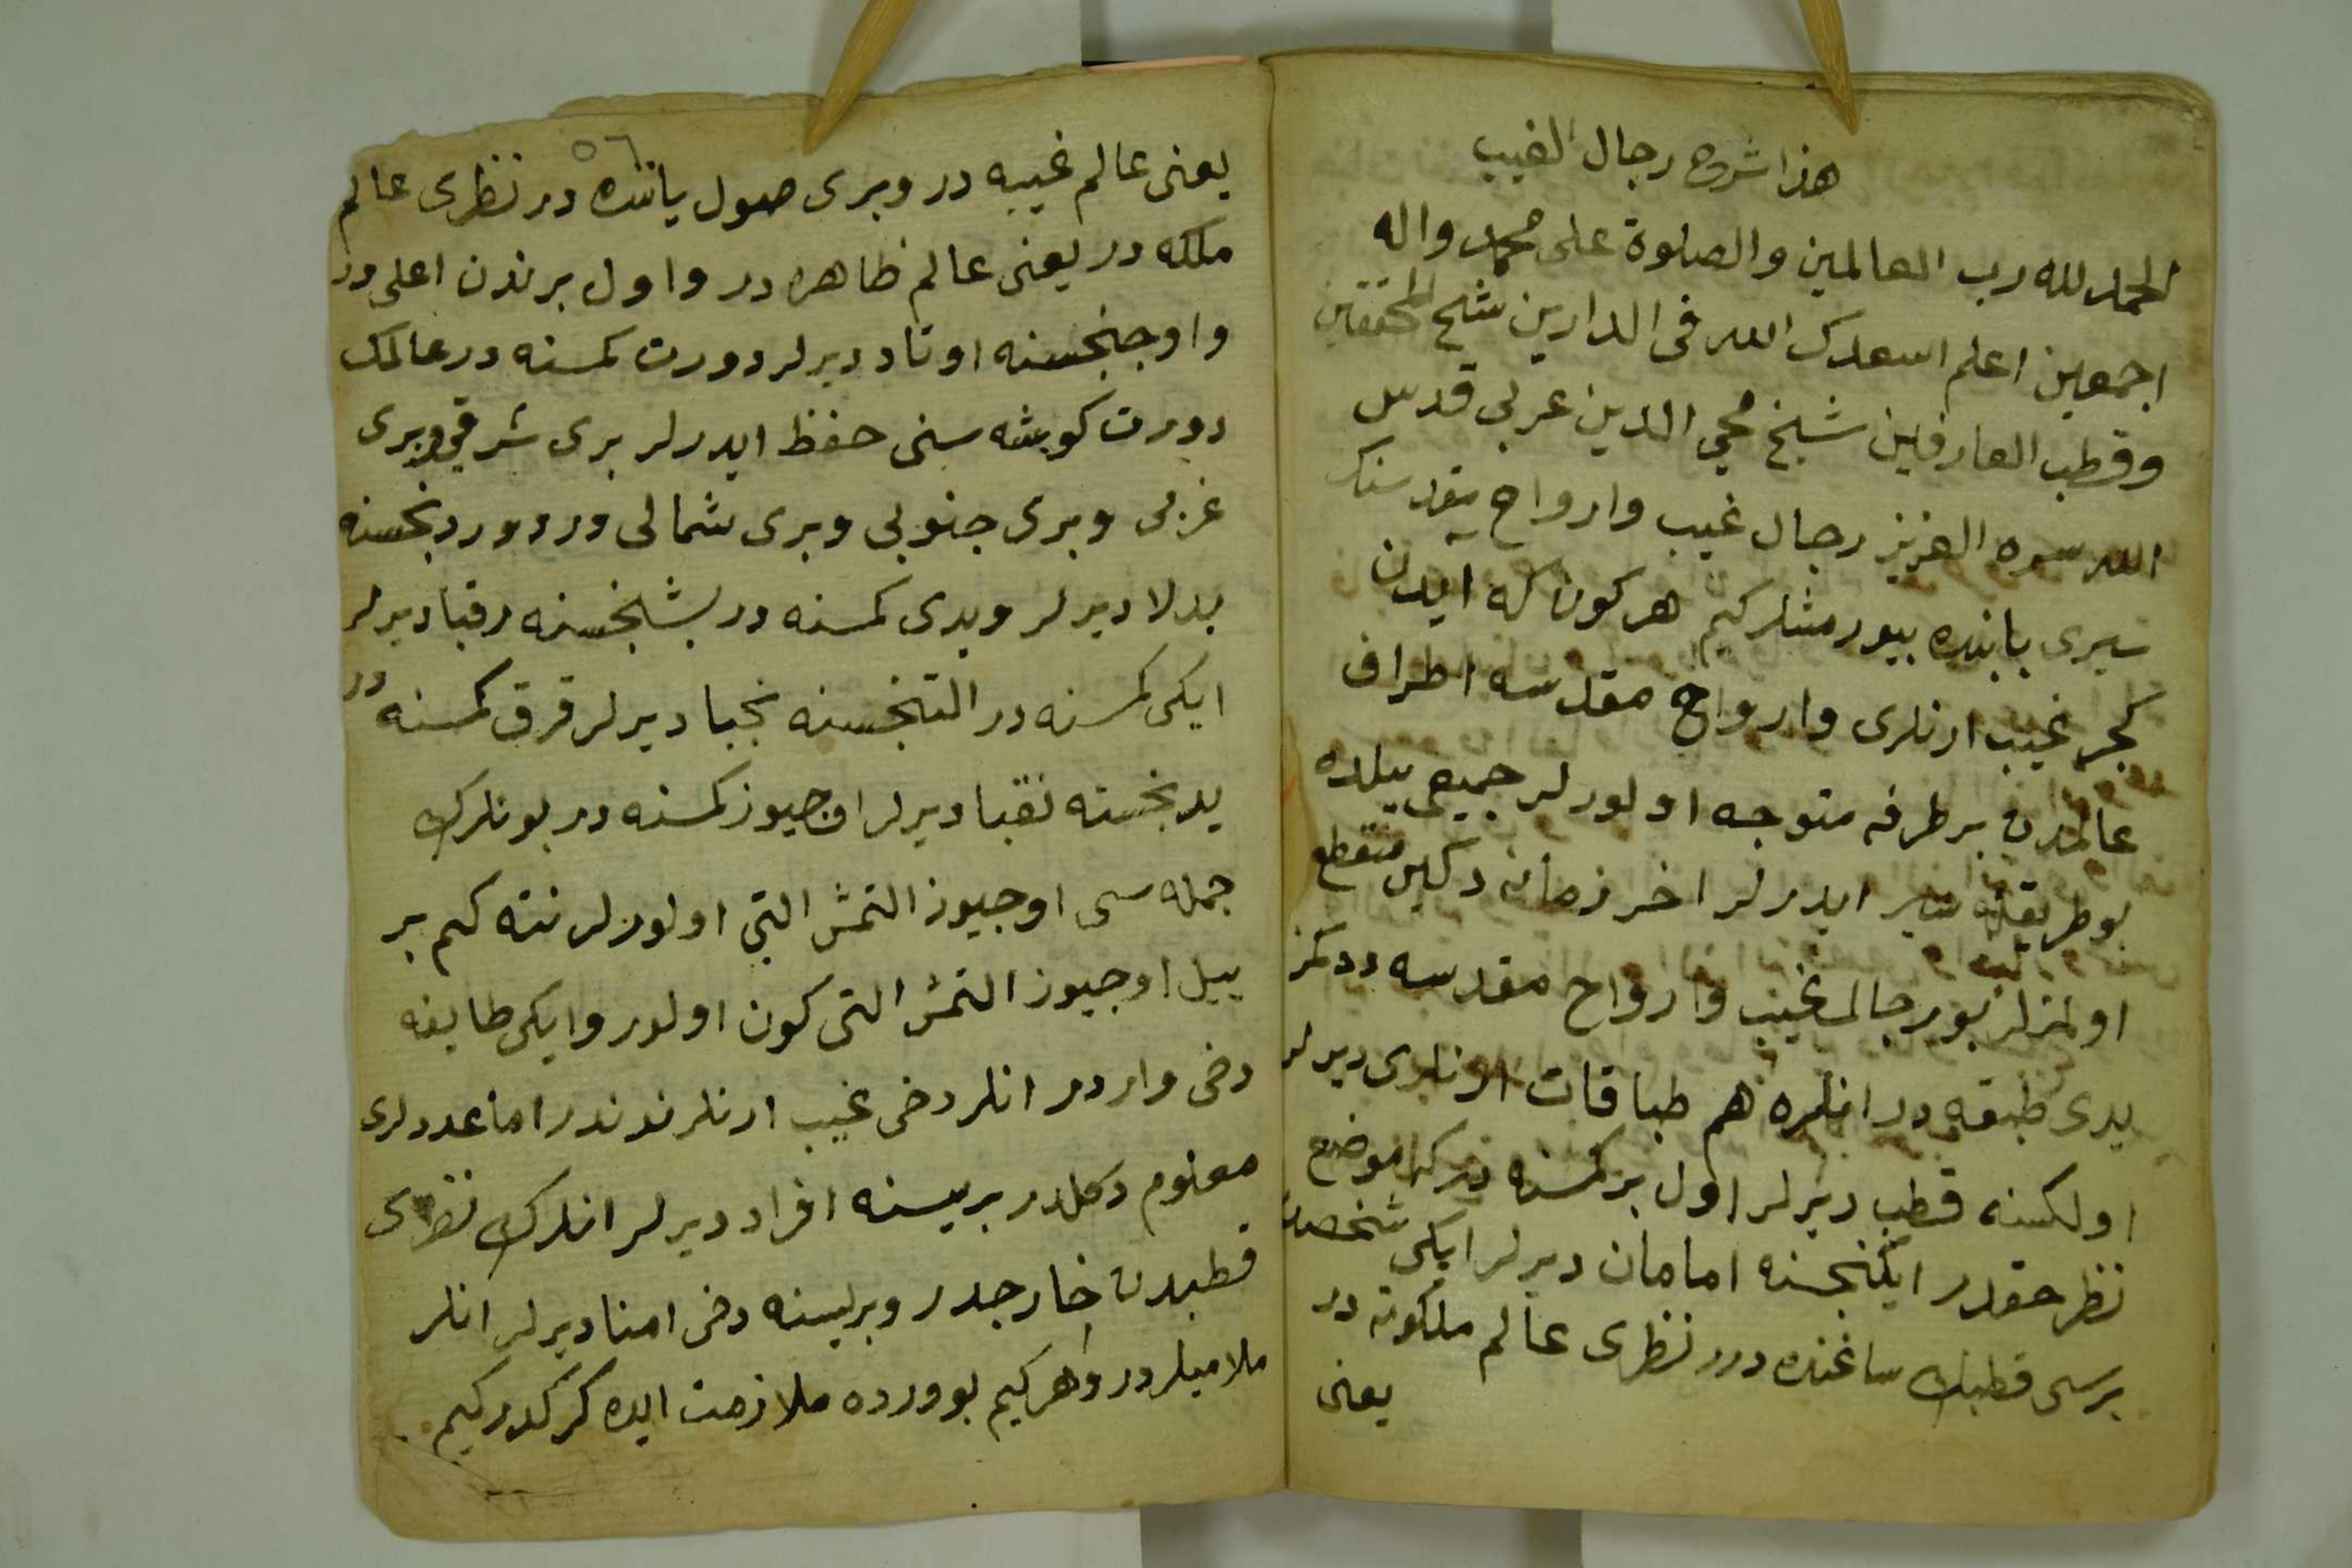 هذا شروح رجال الغيب
الحمد لله رب العالمين والصلوة على محمد واله
اجمعين اعلم اسعدك الله فى الدارين شيخ المحققين
وقطب العارفين شيخ محي الدين عربى قدس
الله سره العزيز رجال غيب وارواح مقدسنك
سيرى بابنده بيورمشلر كيم هر كون كه ايدن
كجر غيب ارنلرى وارواح مقدسه اطراف
عالمدن بر طرفه متوجه اولورلر جميعى ييلده
بو طريقله سير ايدرلر اخر زمانه دكين منقطع
اولمزلر بو رجال غيب وارواح مقدسه ددكمز
يدى طبقه در انلره هم طباقات ارنلرى ديرلر
اولكسنه قطب ديرلر اول بر كمسنه در كه موضع
نظر حقدر ايكنجسنه امامان ديرلر ايكى شخصدر
برسى قطبنك ساغنده در نظرى عالم ملكوته در
يعنى
٥٦
يعنى عالم غيبه در وبرى صول ياننده در نظرى عالم
ملكه در يعنى عالم ظاهره در واول برندن اعلى در
واوجنجسنه اوتاد ديرلر دورت كمسنه در عالمك
دورت كوشه سنى حفظ ايدرلر برى شرقي وبرى
غربى وبرى جنوبى وبرى شمالى در دوردنجسنه
بدلا ديرلر ويدى كمسنه در بشنجسنه رقبا ديرلر
ايكى كمسنه در التنجسنه نجبا ديرلر قرق كمسنه در
يدنجسنه نقبا ديرلر اوجيوز كمسنه در بونلرك
جمله سى اوجيوز التمش التى اولورلر نته كم بر
ييل اوجيوز التمش التى كون اولور وايكى طايفه
دخى واردر انلر دخى غيب ارنلرندندر اما عددلرى
معلوم دكلدر بريسنه افراد ديرلر انلرك نظرى
قطبدن خارجدر وبريسنه دخى امنا ديرلر انلر
ملاميلردر وهر كيم بو وردە ملازمت ايده كركدر كيم